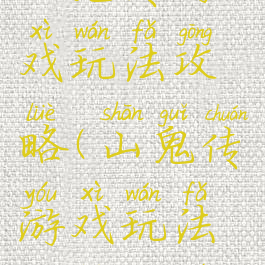 xì wán fǎ gōng
戏玩法攻
lüè shān guǐ chuán
略(山鬼传
yóu xì wán fǎ
游戏玩法